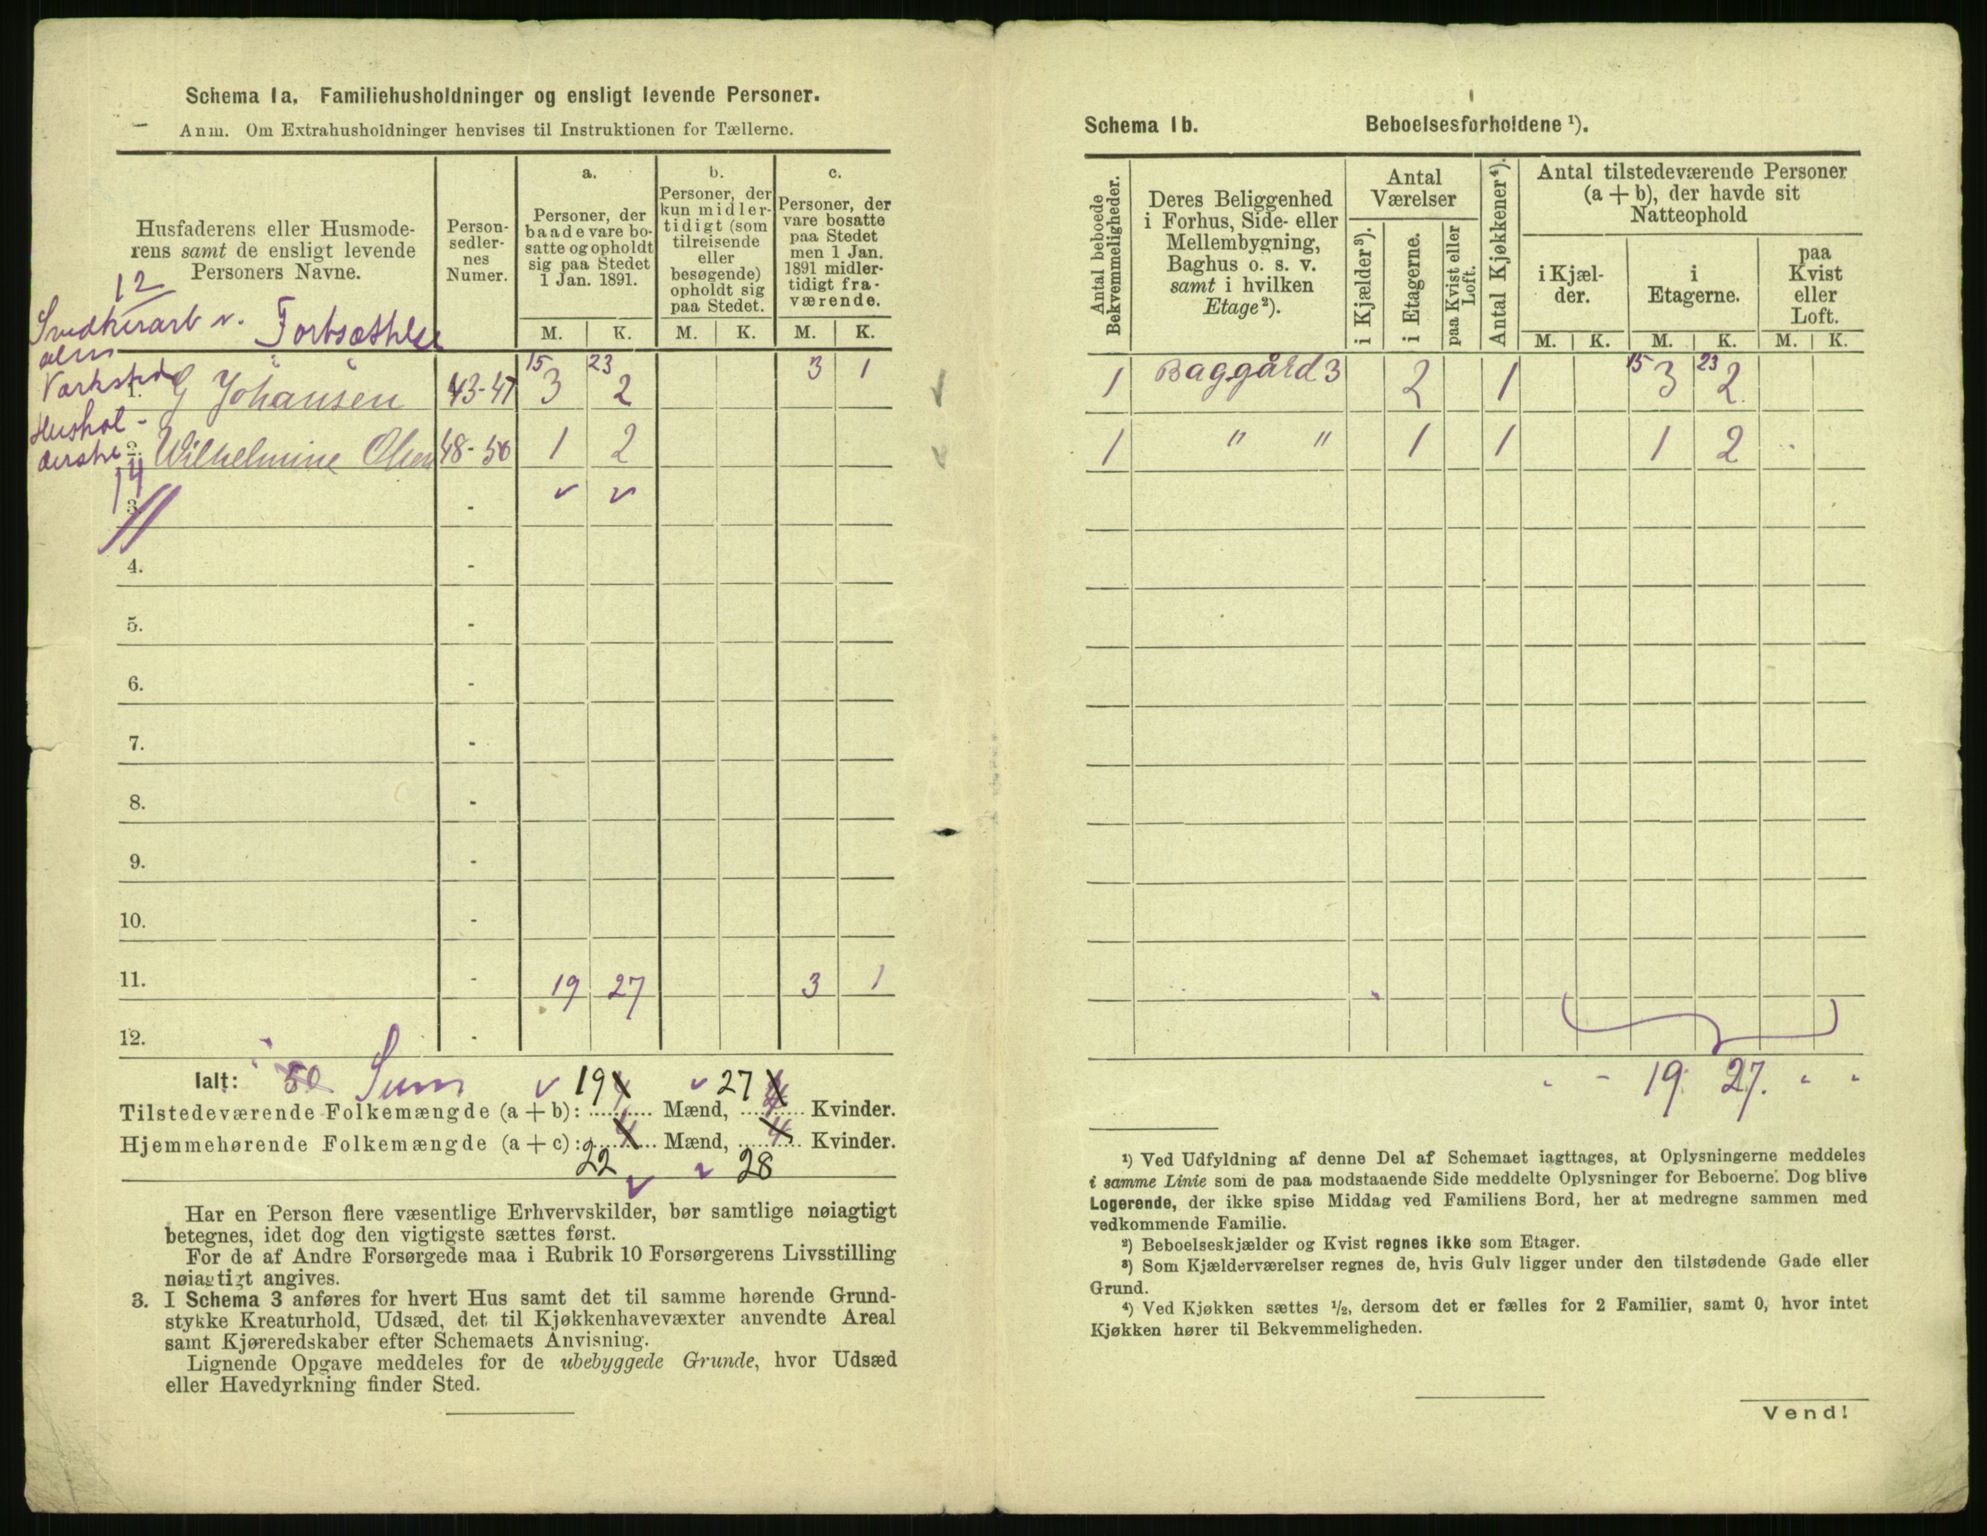 Schema 1a. Familiehusholdninger og ensligt levende Personer.
Anm. Om Extrahusholdninger henvises til Instruktionen for Tællerne.
Husfaderens eller Husmoderens samt de ensligt levende Personers Navne.
Person-sedlernes Numer.
a.
Personer, der baade vare bosatte og opholdt sig paa Stedet 1 Jan. 1891.
b.
Personer, der kun midlertidigt (som tilreisende eller besøgende) opholdt sig paa Stedet.
c.
Personer, der vare bosatte paa Stedet men 1 Jan. 1891 midlertidigt fraværende.
M. K. M. K. M. K.
12
Snedkerarb v.
Fortsættelse
Værksted
15 23
1. G Johansen 43-47 3 2 3 1
Hushol-
derske
2. Wilhelmine Olsen 48-50 1 2
14
3. -
4. -
5. -
6. -
7. -
8. -
9. -
10. -
11. - 19 27 3 1
12. -
Ialt: 50 Sum 19 4 27 4
Tilstedeværende Folkemængde (a + b): ......... Mænd, ......... Kvinder.
Hjemmehørende Folkemængde (a + c): 4 Mænd, 4 Kvinder.
22 28
Har en Person flere væsentlige Erhvervskilder, bør samtlige nøiagtigt
betegnes, idet dog den vigtigste sættes først.
For de af Andre Forsørgede maa i Rubrik 10 Forsørgerens Livsstilling
nøiagtigt angives.
3. I Schema 3 anføres for hvert Hus samt det til samme hørende Grund-
stykke Kreaturhold, Udsæd, det til Kjøkkenhavevæxter anvendte Areal
samt Kjøreredskaber efter Schemaets Anvisning.
Lignende Opgave meddeles for de ubebyggede Grunde, hvor Udsæd
eller Havedyrkning finder Sted.
Schema 1b. Beboelsesforholdene ¹).
Antal beboede Bekvemmeligheder.
Deres Beliggenhed i Forhus, Side- eller Mellembygning, Baghus o. s. v. samt i hvilken Etage²).
Antal Værelser
i Kjælder³).
i Etagerne.
paa Kvist eller Loft.
Antal Kjøkkener⁴).
Antal tilstedeværende Personer (a + b), der havde sit Natteophold
i Kjælder.
i Etagerne.
paa Kvist eller Loft.
M. K. M. K. M. K.
15 23
1 Baggård 3 2 1 3 2
1 " " 1 1 1 2
19 27.
¹) Ved Udfyldning af denne Del af Schemaet iagttages, at Oplysningerne meddeles
i samme Linie som de paa modstaaende Side meddelte Oplysninger for Beboerne. Dog blive
Logerende, der ikke spise Middag ved Familiens Bord, her at medregne sammen med
vedkommende Familie.
²) Beboelseskjælder og Kvist regnes ikke som Etager.
³) Som Kjælderværelser regnes de, hvis Gulv ligger under den tilstødende Gade eller
Grund.
⁴) Ved Kjøkken sættes ½, dersom det er fælles for 2 Familier, samt 0, hvor intet
Kjøkken hører til Bekvemmeligheden.
Vend!